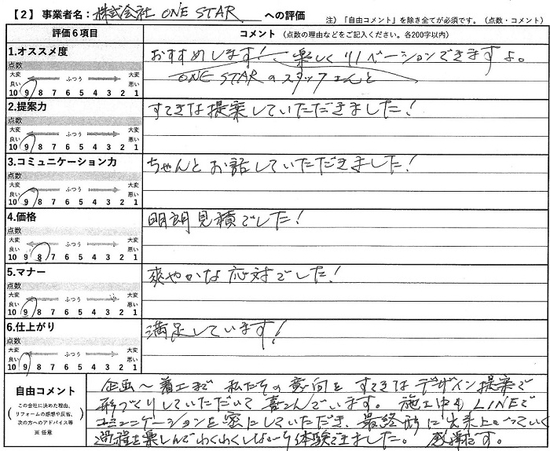 【2】 事業者名：株式会社 ONE STAR への評価 注）「自由コメント」を除き全てが必須です。（点数・コメント）
評価6項目 コメント （点数の理由などをご記入ください。各200字以内）
1.オススメ度 おすすめします！楽しくリノベーションできますよ。
点数 ONE STARのスタッフさんと
大変 ふつう 大変
良い 悪い
10 9 8 7 6 5 4 3 2 1
2.提案力 すてきな提案していただきました！
点数
大変 ふつう 大変
良い 悪い
10 9 8 7 6 5 4 3 2 1
3.コミュニケーション力 ちゃんとお話していただきました！
点数
大変 ふつう 大変
良い 悪い
10 9 8 7 6 5 4 3 2 1
4.価格 明朗見積でした！
点数
大変 ふつう 大変
良い 悪い
10 9 8 7 6 5 4 3 2 1
5.マナー 爽やかな応対でした！
点数
大変 ふつう 大変
良い 悪い
10 9 8 7 6 5 4 3 2 1
6.仕上がり 満足しています！
点数
大変 ふつう 大変
良い 悪い
10 9 8 7 6 5 4 3 2 1
自由コメント
この会社に決めた理由、
リフォームの感想や反省、
次の方へのアドバイス等
※ 任意
企画〜着工まで 私たちの意向を すてきな デザイン提案で
形づくりしていただいて喜こんでいます。 施工中も LINEで
コミュニケーションを密にしていただき、最終形に出来上がっていく
過程を楽しんでわくわくしながら体験できました。 感謝です。